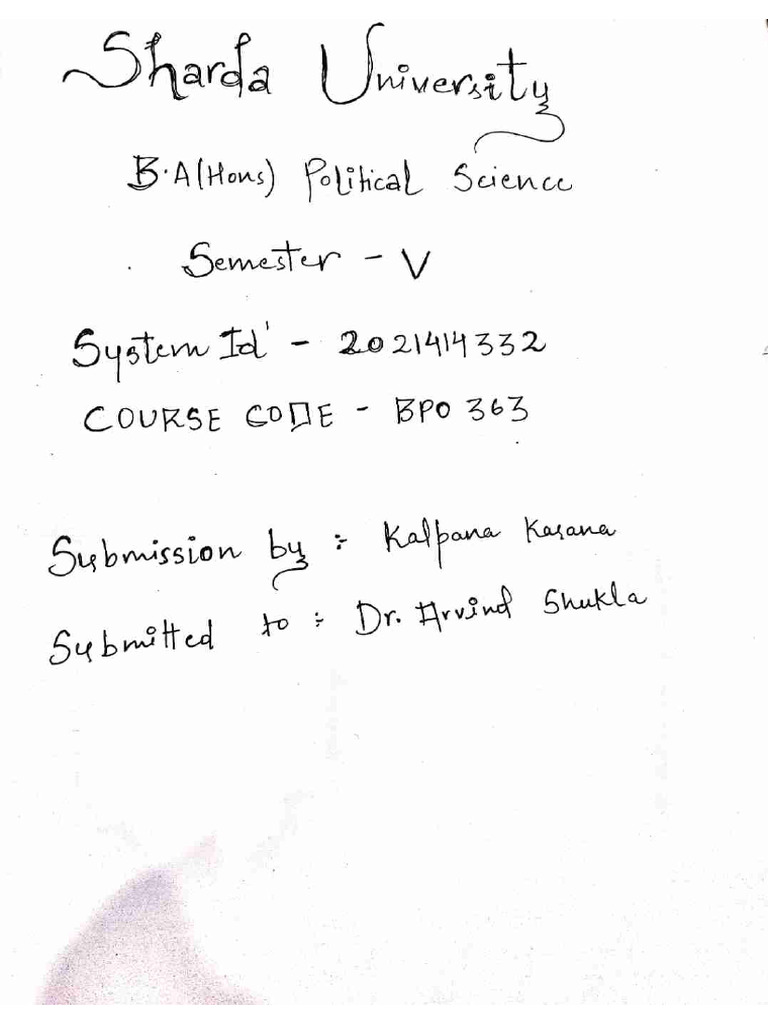 Sharda University
B.A(Hons) Political Science
Semester - V
System Id' - 2021414332
COURSE CODE - BPO 363
Submission by :- Kalpana Kasana
Submitted to :- Dr. Arvind Shukla